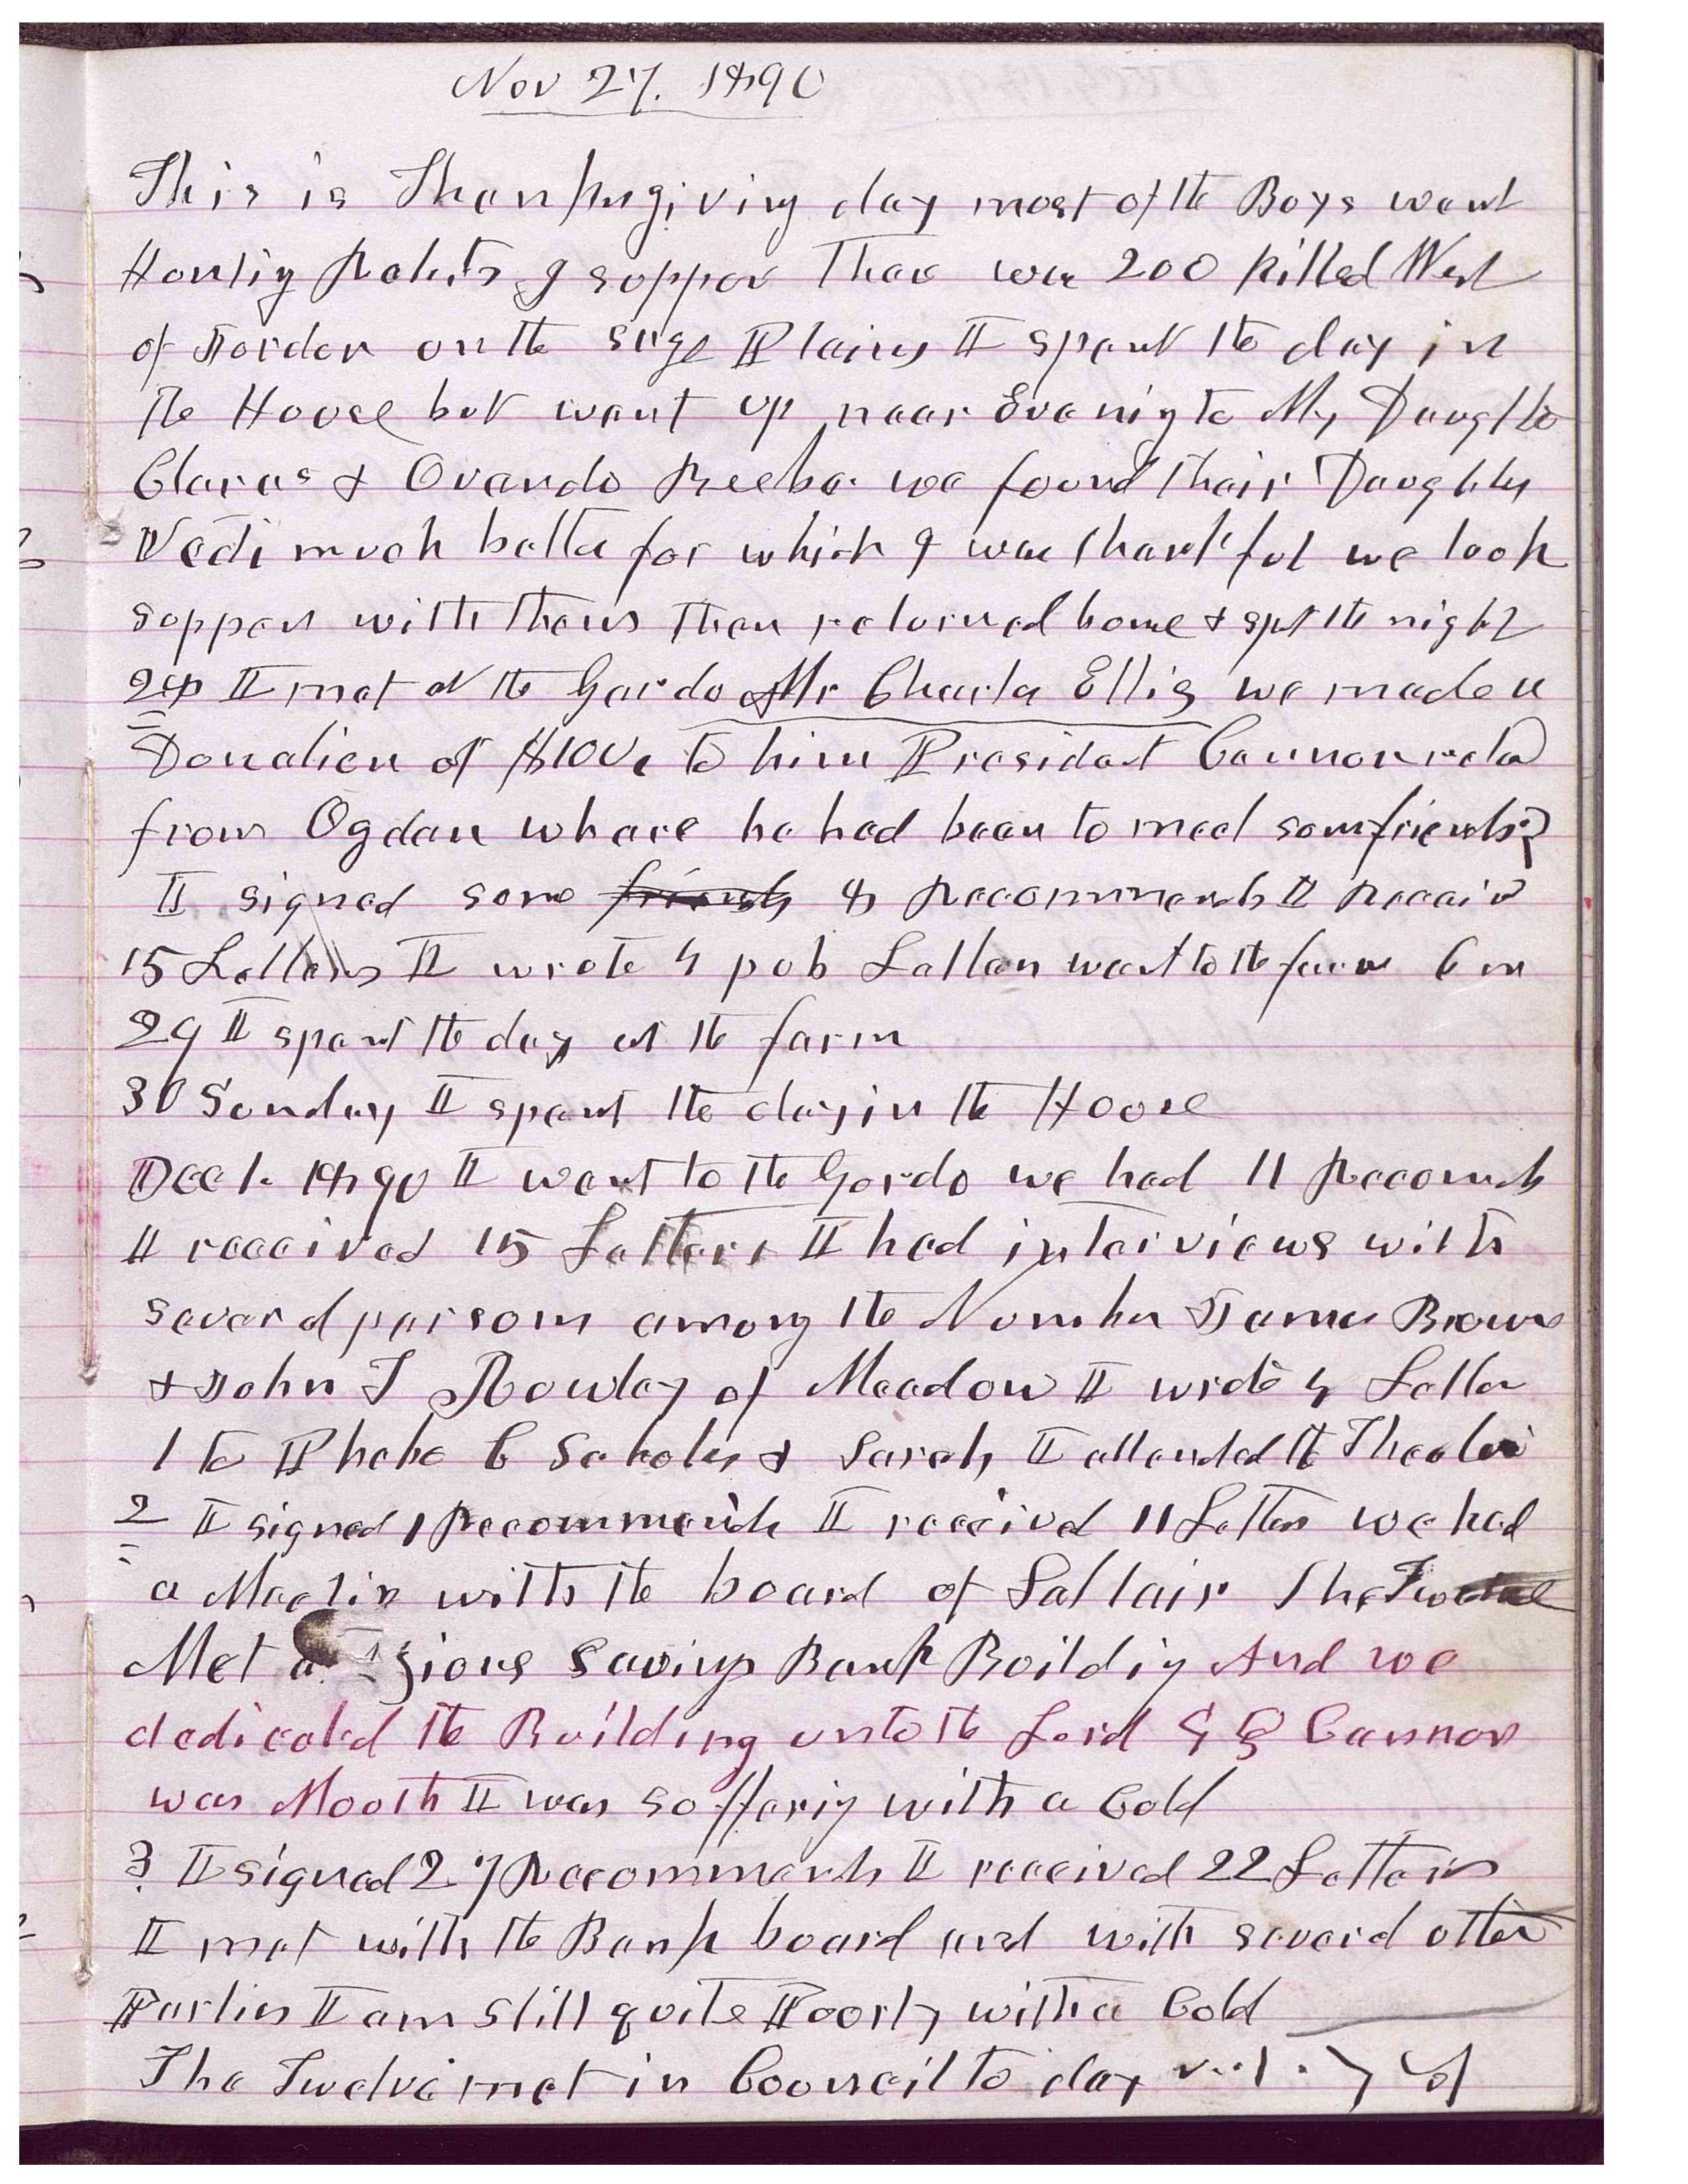 Nov 27. 1890
This is Thanksgiving day most of the Boys went
Hunting Rabits & supper Thare was 200 killed West
of Jordon on the sage Plains I spent the day in
the House but went up near Evening to My Daughter
Claras & Ovando Beebe we found thair Daughter
much better for which I was thankful we took
supper with them then returned home & spt the night
28 I met at the Gardo Mr Charles Ellis we made a
Donation of $100, to him President Cannon retd
from Ogden whare he had been to meet som friends
I signed some friends 8 Recommends I Receivd
15 Letters I wrote 4 pub Letters went to the farm 6 m
29 I spent the day at the farm
30 Sunday I spent the day in the House
Dec 1. 1890 I went to the Gardo we had 11 Recomds
I received 15 Letters I had interviews with
several persons among the Number James Brown
& John T Rowley of Meadow I wrote 4 Letter
1 to Phebe C Scholes & Sarah I attended the Theater
2 I signed 1 Recommends I received 11 Letters we had
a Meetin with the board of Saltair The Twelve
Met at Zions Savings Bank Building And we
dedicated the Building unto the Lord G Q Cannon
was Mouth I was suffering with a Cold
3 I signed 27 Recommends I received 22 Letters
I met with the Bank board and with several other
Parties I am still quite Poorly with a Cold
The Twelve met in Council to day